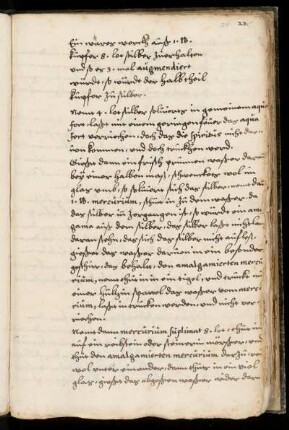 22.
Ein wares werckh auß 1. lb.
kupfer 8. lot silber zu erhalten
und so er 3. mal augmendiert
würdt, so würdt der halb theil
kupfer zu silber.
Nemt 4. lot silber soluiert in gemeinem aqua
fort, last mit einem geringen feüer das aqua
fort verriechen, doch das die spiritus nicht dar
von kommen, und doch truckhen werd.
Giesset dann ein frisch prunnen wasser daran
bey einer halben maß, schwenckets wol im
glas umb, so soluiert sich das silber, nemt dan
1. lb. mercurium, schit in zu dem wasser, da
das silber in zergangen ist, so würdt ein ama
gama auß dem silber, das silber last nicht lang
daran stehn, das sich das silber nicht auflöst,
giesset das wasser darvon in ein besonder
geschirr, das behalt, den amalgamierten mercu
rium, nemt thüt in in ein tigel, und trückt mit
einer hültzin spattel das wasser vom mercu
rium, last in trucken werden, und nicht ver
riechen.
Nemt dann mercurium sublimat 8. lot, thüt in
auf ein reibstein oder steinern mörser, und
thüt den amalgamierten mercurium dar zu,
wol under einander, dann thüts in ein viol
glas, giesset das abgossen wasser wider darin